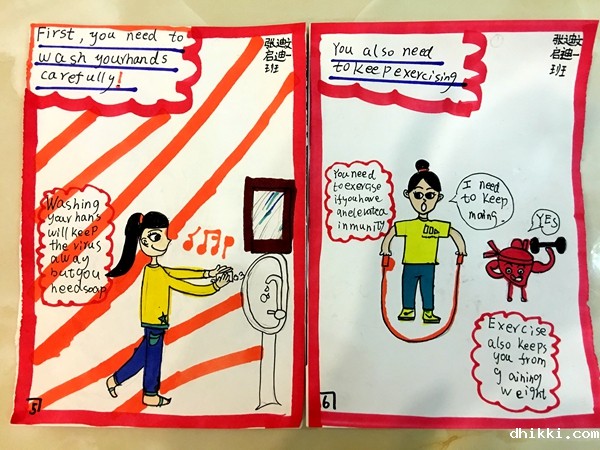 First, you need to
wash yourhands
carefully!
张迪文
启迪一
班
Washing
your hans
will keep
the virus
away
but you
need soap
5
You also need
to keep exercising
张迪文
启迪一
班
You need
to exercise
if you have
an elevated
inmunity
I need
to keep
moing.
YES
Exercise
also keeps
you from
g aining
weight
6
dhikki.com